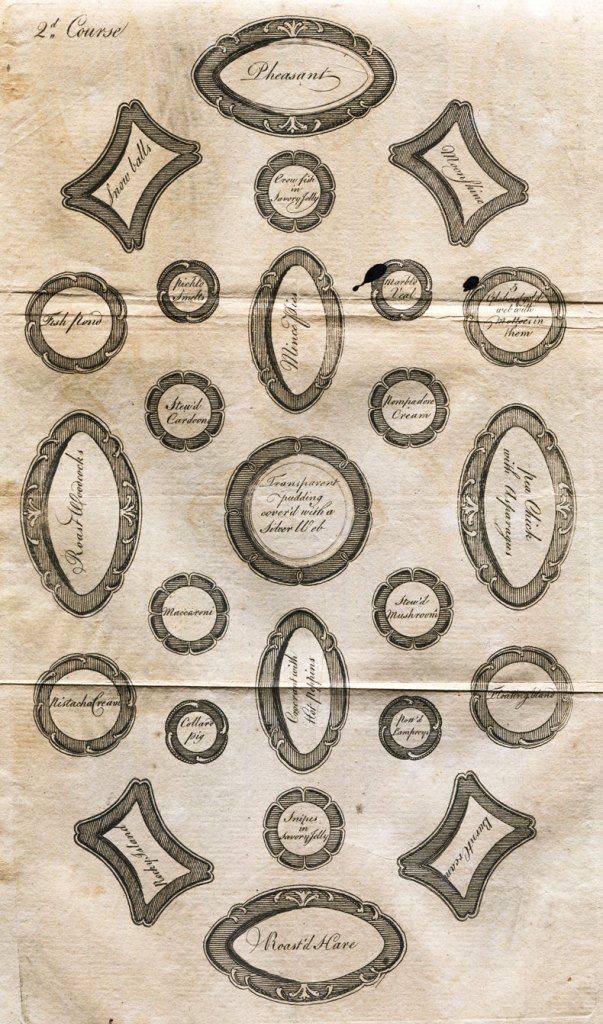 2d Course
Pheasant
Snow balls
Moonshine
Crow fish
in
Savory Jelly
Pickl'd
Smelts
Marble
Veal
Fish Pond
Mince Pies
5
web with
in
them
Stew'd
Cardoon
Pompadore
Cream
Roast Woodcocks
Transparent
pudding
cover'd with a
Silver Web
Pea Chick
with Asparagus
Maccaroni
Stew'd
Mushroom
Pistacha Cream
Crocant with
Hot Pippins
Floating Island
Collar'd
pig
Pott'd
Lampreys
Rocky Island
Snipes
in
Savory Jelly
Burnt Cream
Roast'd Hare